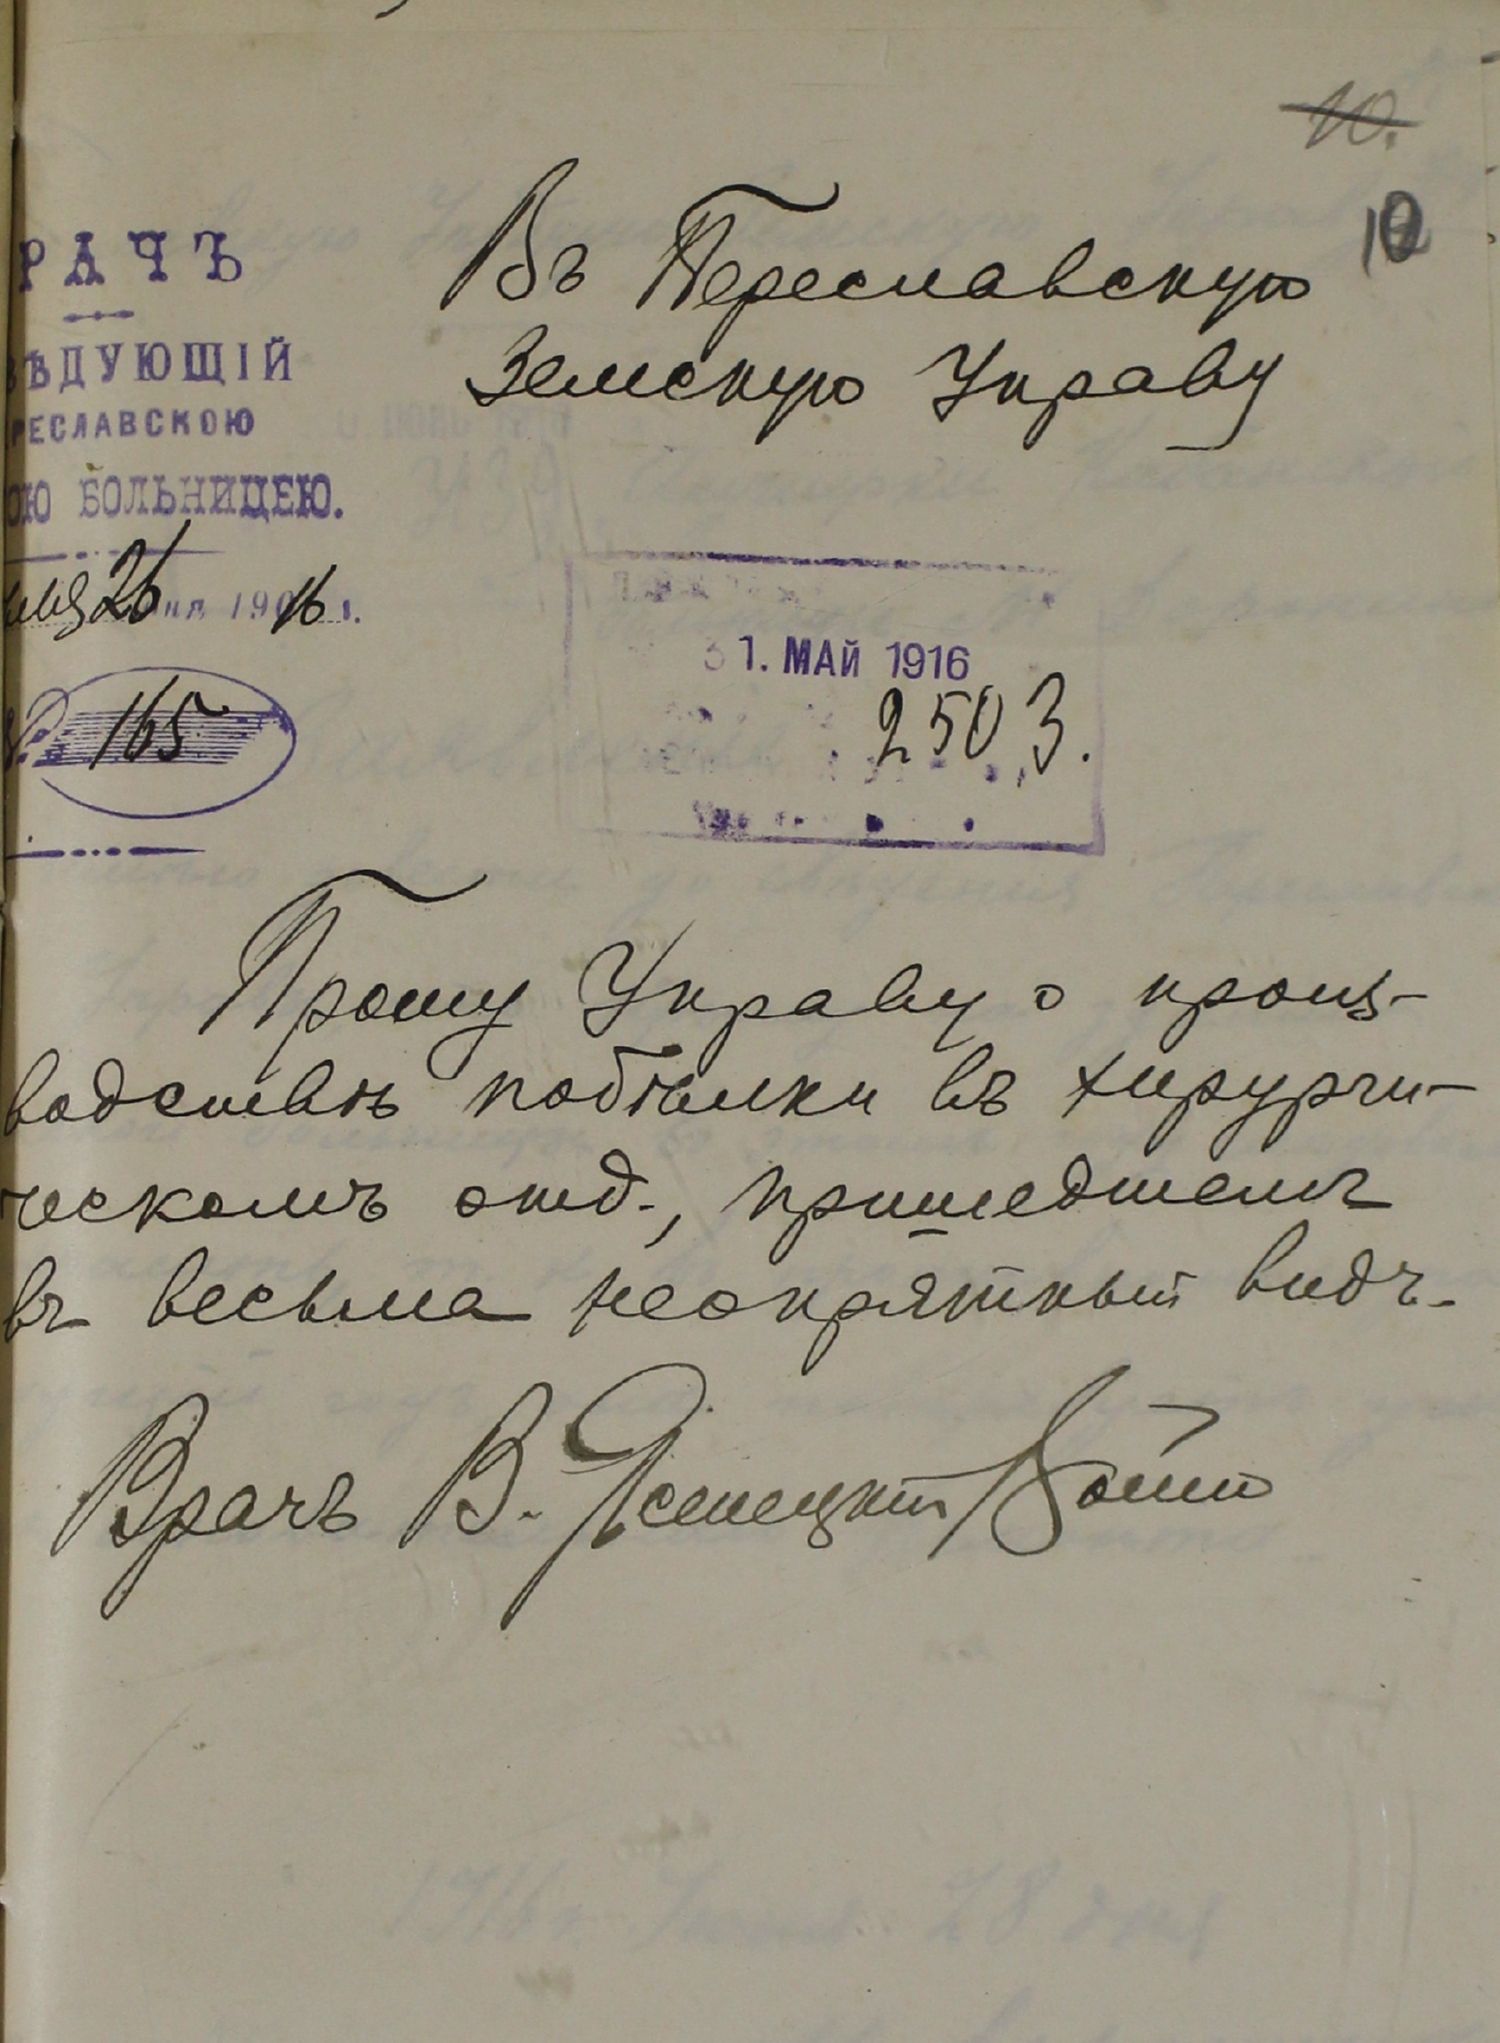 10.
12
РАЧЪ
ВѢДУЮЩІЙ
РЕСЛАВСКОЮ
ОЮ БОЛЬНИЦЕЮ.
мая 26 дня 1916 г.
№ 165
Въ Переславскую
Земскую Управу
31. МАЙ 1916
2503.
Прошу Управу о произ-
водствѣ побѣлки въ хирурги-
ческомъ отд., пришедшемъ
въ весьма неопрятный видъ.
Врачъ В. Ясенецкій Войно